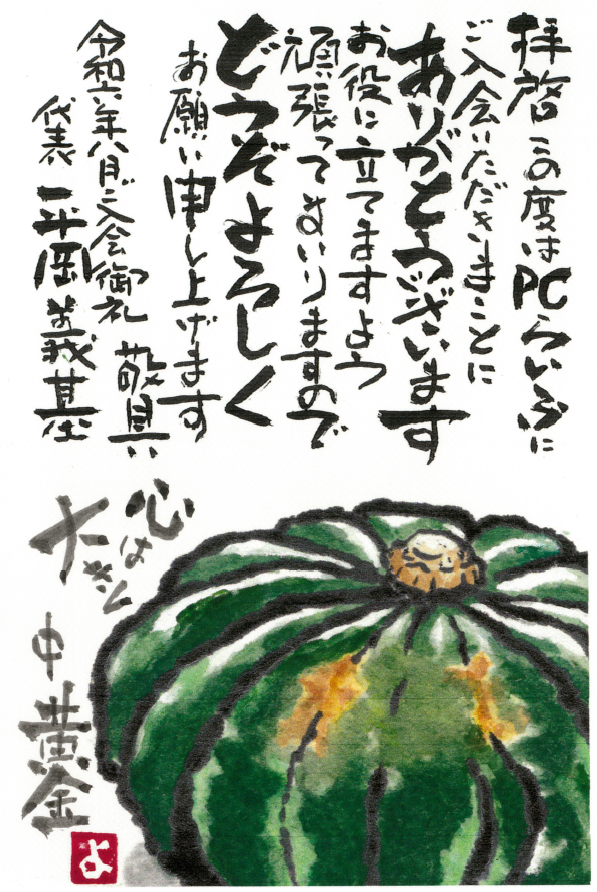 拝啓 この度はPCらいふに
ご入会いただきまことに
ありがとうございます
お役に立てますよう
頑張ってまいりますので
どうぞよろしく
お願い申し上げます
敬具
令和六年八月ご入会御礼
代表 平岡義基
心は
大きく
中黄金
よ